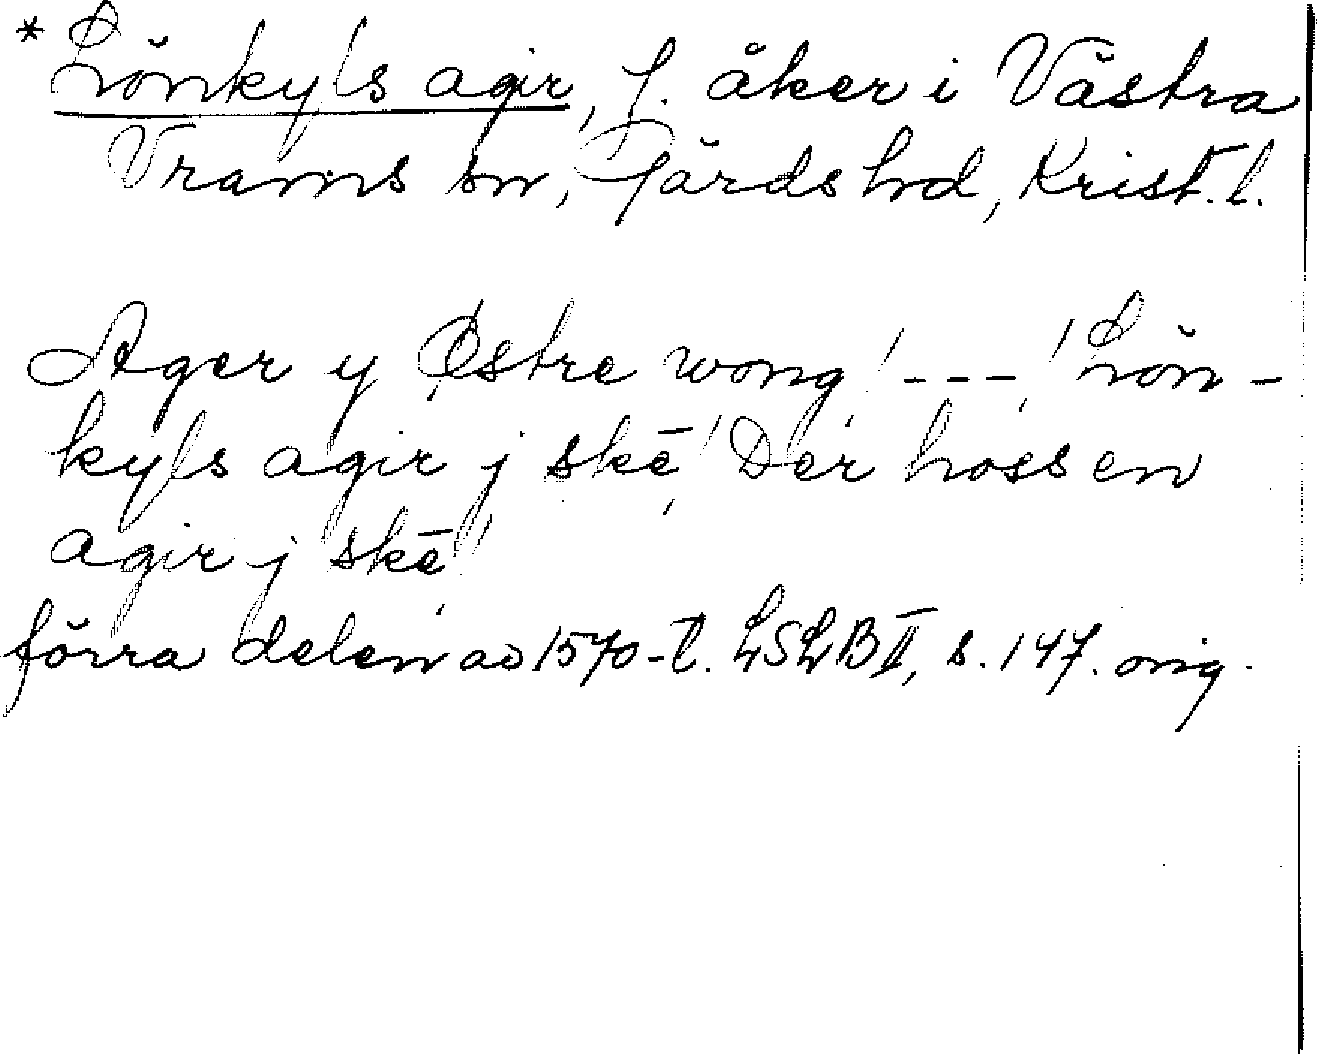 * Lönkyls agir, f. åker i Västra
Vrams sn, Gärds hd, Krist. l.
Ager y Østre wong, ! - - - ! Lön-
kyls agir j skē, ! Der hoss en
agir j skē, !
förra delen av 1570-t. LSLB II, s. 147. orig.